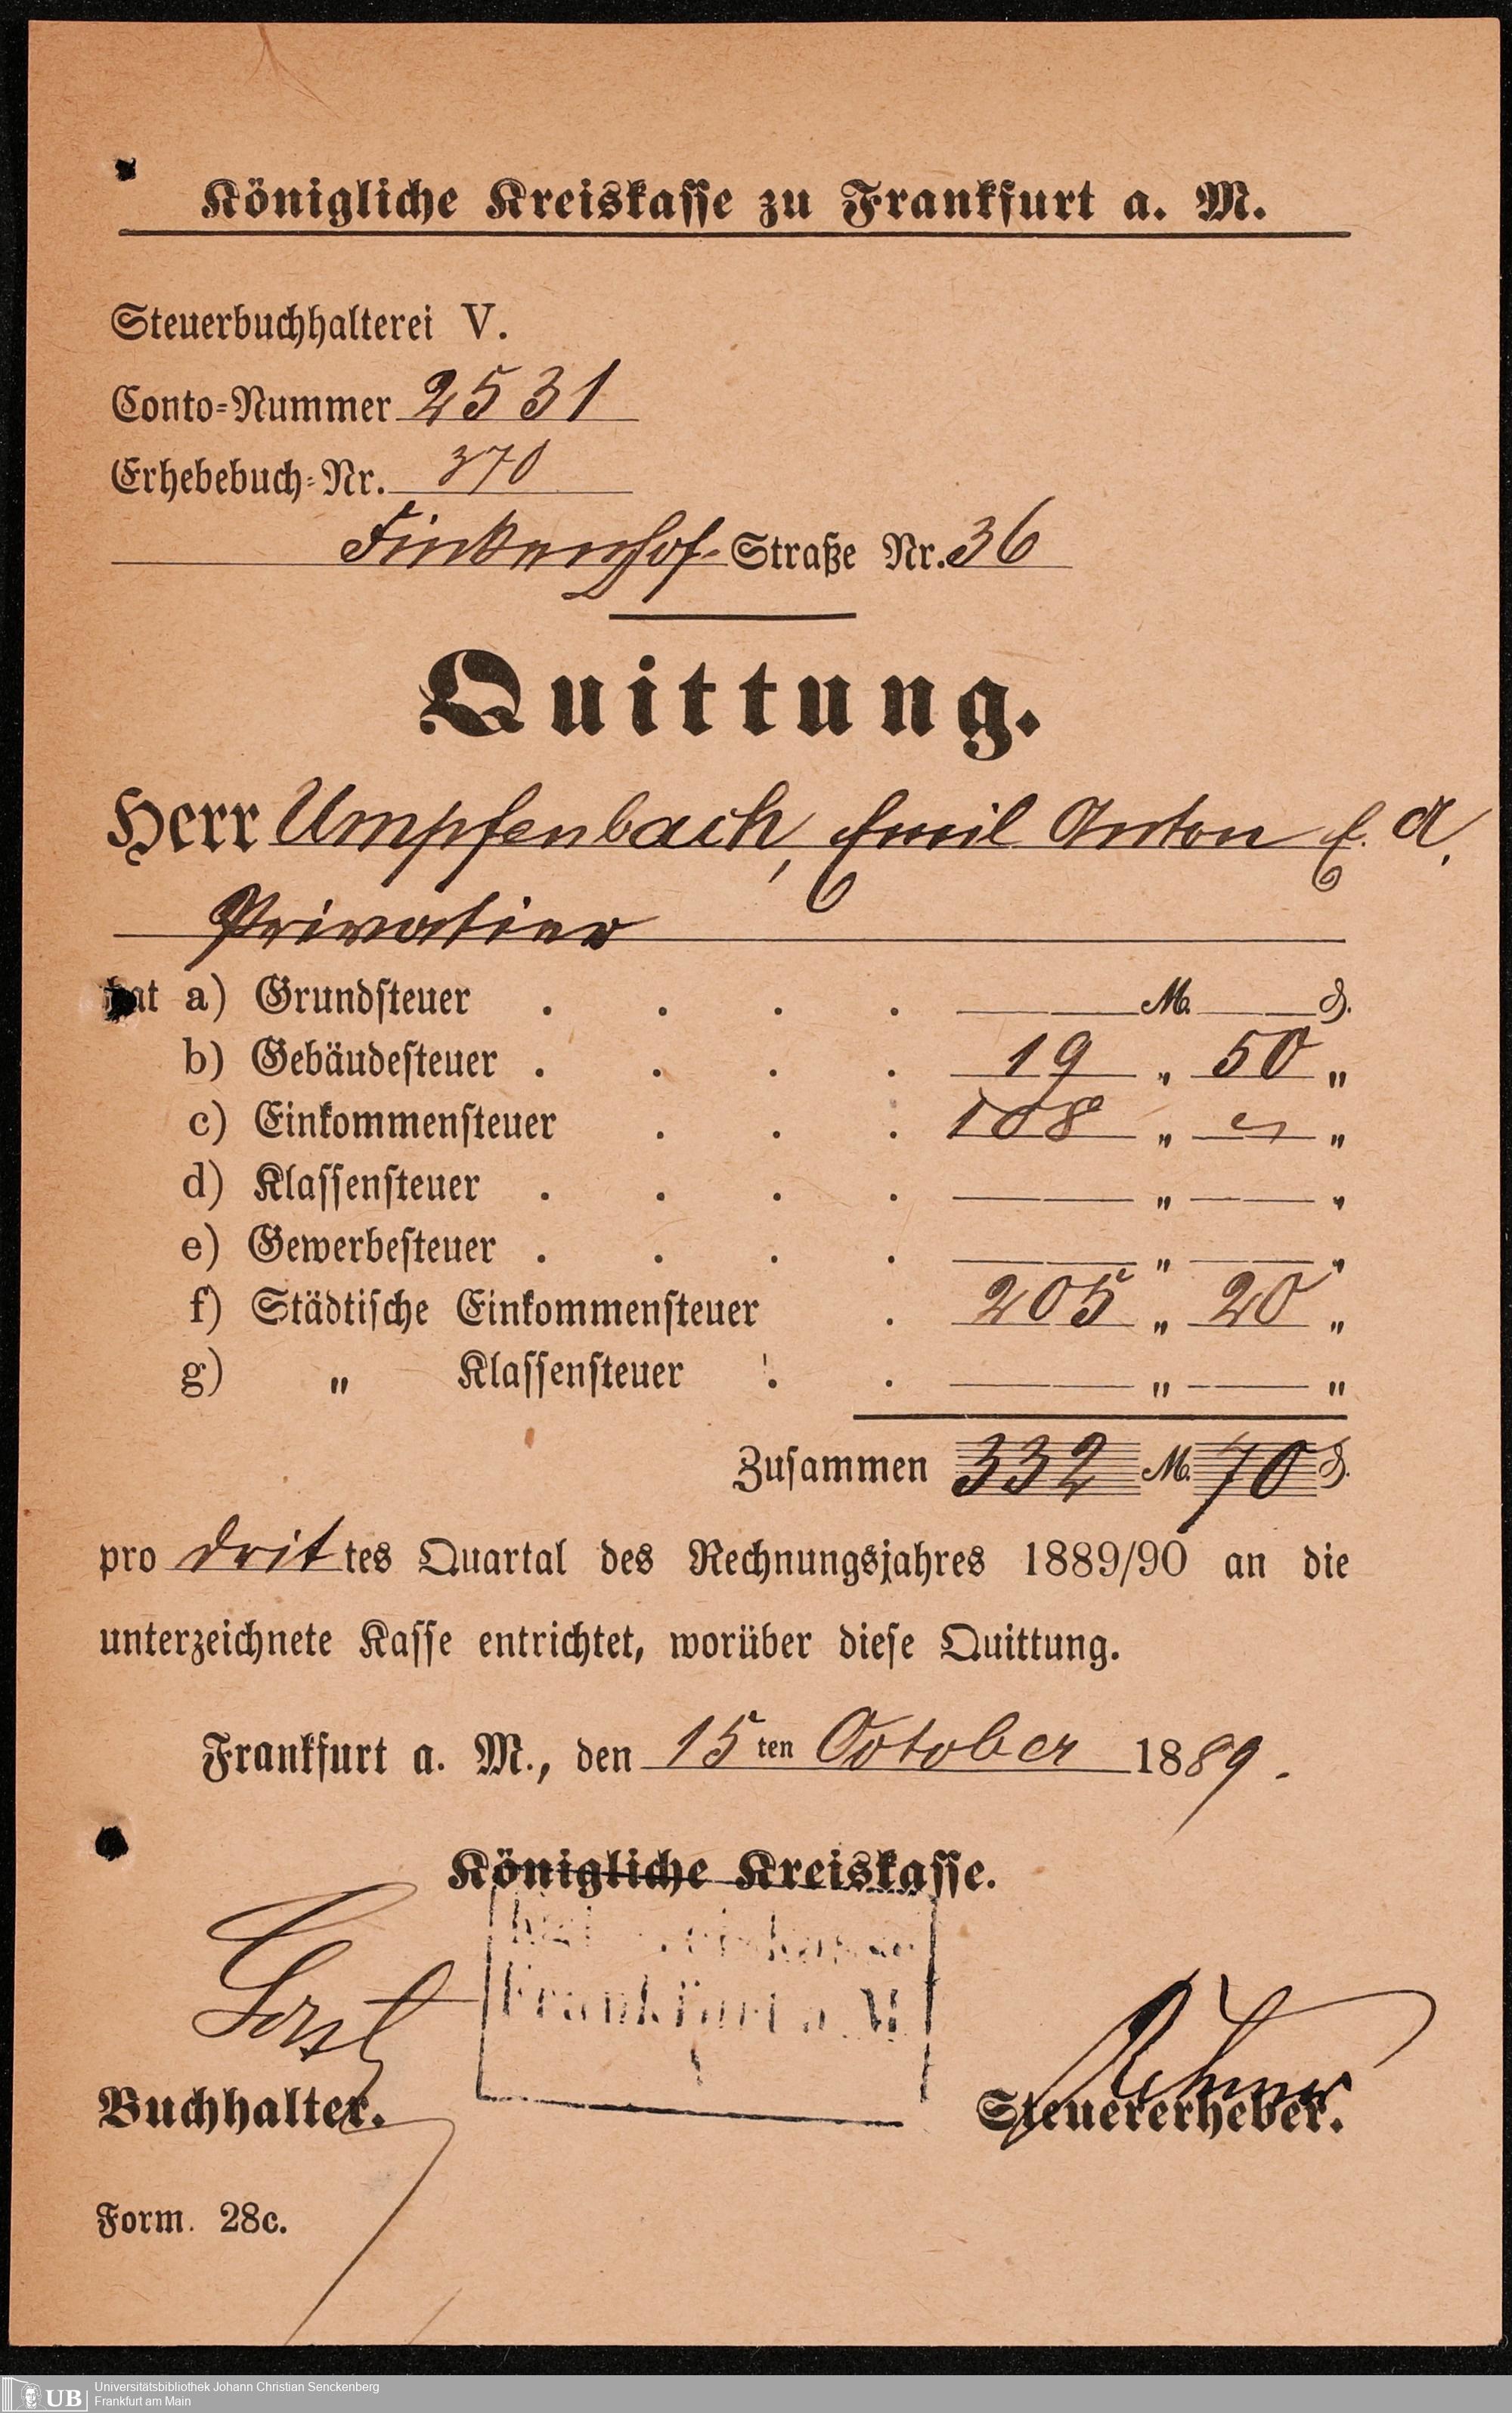 Königliche Kreiskasse zu Frankfurt a. M.
Steuerbuchhalterei V.
Conto-Nummer 2531
Erhebebuch-Nr. 370
Finkenhof-Straße Nr. 36
Quittung.
Herr Umpfenbach, Emil Anton E. A.
Privatier
hat a) Grundsteuer . . . . M. ₰.
b) Gebäudesteuer . . . . 19 " 50 "
c) Einkommensteuer . . . 108 " "
d) Klassensteuer . . . . " "
e) Gewerbesteuer . . . . " "
f) Städtische Einkommensteuer . 205 " 20 "
g) " Klassensteuer . . " "
Zusammen 332 M. 70 ₰.
pro drittes Quartal des Rechnungsjahres 1889/90 an die
unterzeichnete Kasse entrichtet, worüber diese Quittung.
Frankfurt a. M., den 15ten October 1889.
Königliche Kreiskasse.
Frankfurt a. M.
Buchhalter. Steuererheber.
Form. 28c.
UB Universitätsbibliothek Johann Christian Senckenberg
Frankfurt am Main